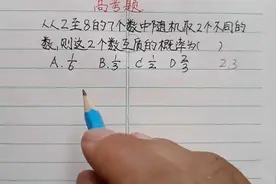 高考题
从从2至8的7个数中随机取2个不同的
数,则这2个数互质的概率为( )
A. 1/6 B. 1/3 C 1/2 D 2/3 2,3